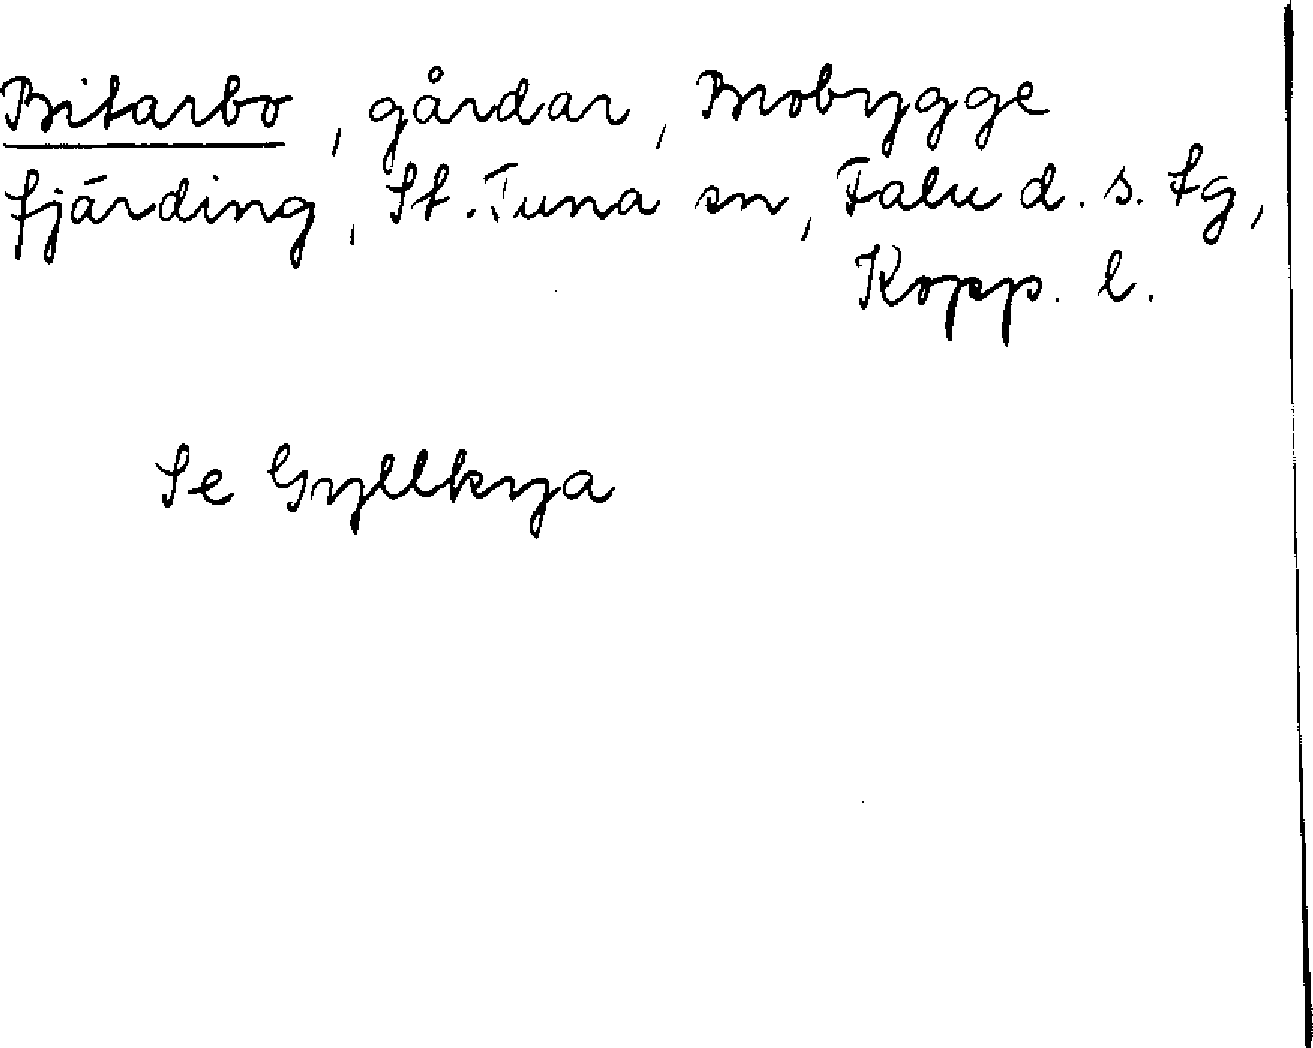 Bitarbo, gårdar, Brobygge
fjärding, St. Tuna sn, Falu d. s. tg,
Kopp. l.
Se Gyllkya